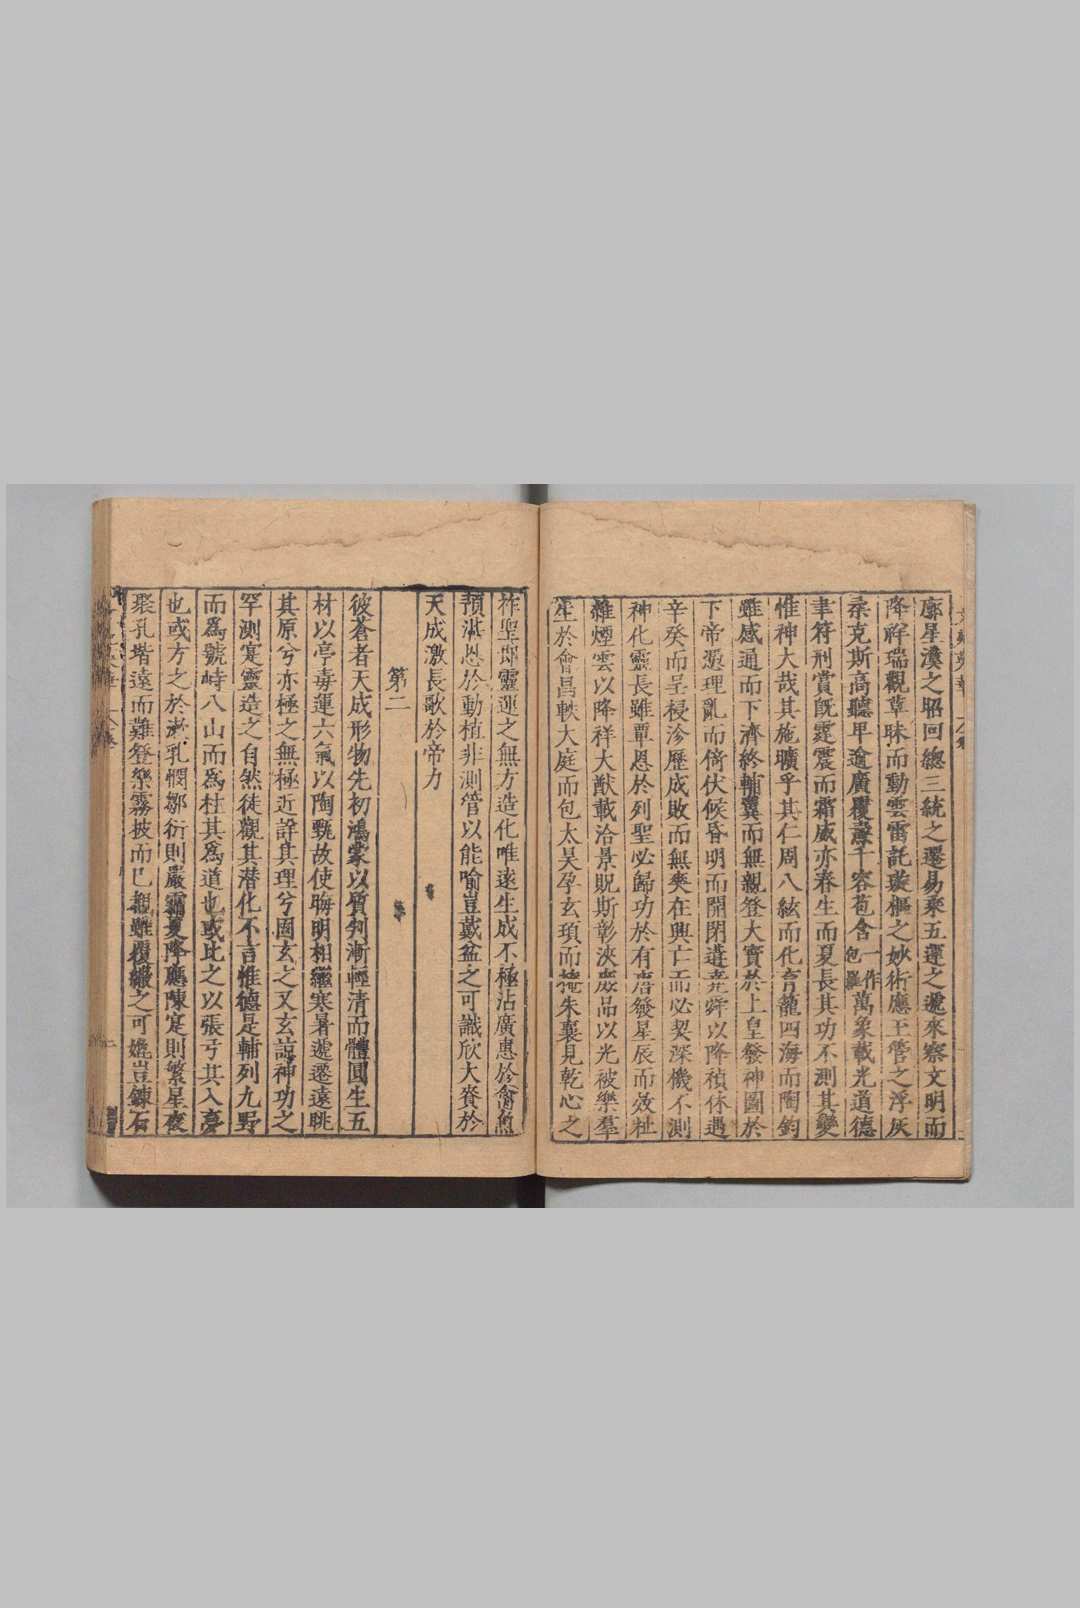 廓星漢之昭回總三統之遷易乘五運之遞來察文明而
降祥瑞觀草昧而動雲雷託璇樞之妙術應玉管之浮灰
柔克斯高聽卑逾廣覆燾千容苞含一作包羅萬象載光道德
聿符刑賞旣霆震而霜威亦春生而夏長其功不測其變
惟神大哉其施曠乎其仁周八紘而化育籠四海而陶鈞
雖感通而下濟終輔翼而無親登大寶於上皇發神圖於
下帝憑理亂而倚伏候昏明而開閉遣堯舜以降禎休遇
辛癸而呈祲沴歷成敗而無爽在興亡而必契深機不測
神化靈長雖覃恩於列聖必歸功於有唐發星辰而效祉
雜煙雲以降祥大猷載洽景貺斯彰浹庶品以光被樂羣
生於會昌軼大庭而包太昊孕玄頊而掩朱襄見乾心之
祚聖卽靈運之無方造化唯遠生成不極沾廣惠於禽魚
預湛恩於動植非測管以能喻豈戴盆之可識欣大賚於
天成激長歌於帝力
第二
彼蒼者天成形物先初鴻蒙以質判漸輕清而體圓生五
材以亭毒運六氣以陶甄故使晦明相繼寒暑遞遷遠眺
其原兮亦極之無極近詳其理兮固玄之又玄諒神功之
罕測寔靈造之自然徒觀其潜化不言惟德是輔列九野
而爲號峙八山而爲柱其爲道也或比之以張弓其入夢
也或方之於潄乳憫鄒衍則嚴霜夏降應陳寔則繁星夜
聚孔堦遠而難登樂霧披而已覩雖覆緻之可媲豈鍊石